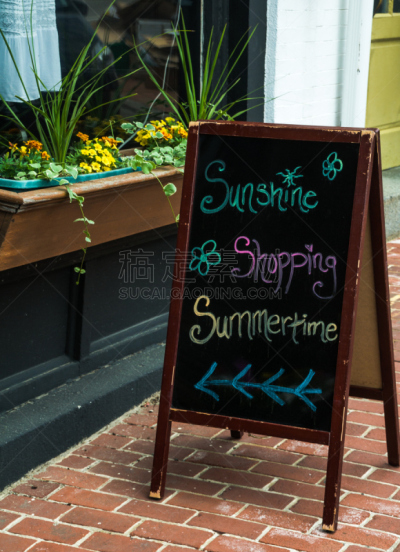 Sunshine
Shopping
Summertime
搞定素材
SUCAI.GAODING.COM